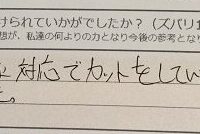 けられていかがでしたか？（ズバリ
想が、私達の何よりの力となり今後の参考となり
対応でカットをしてい